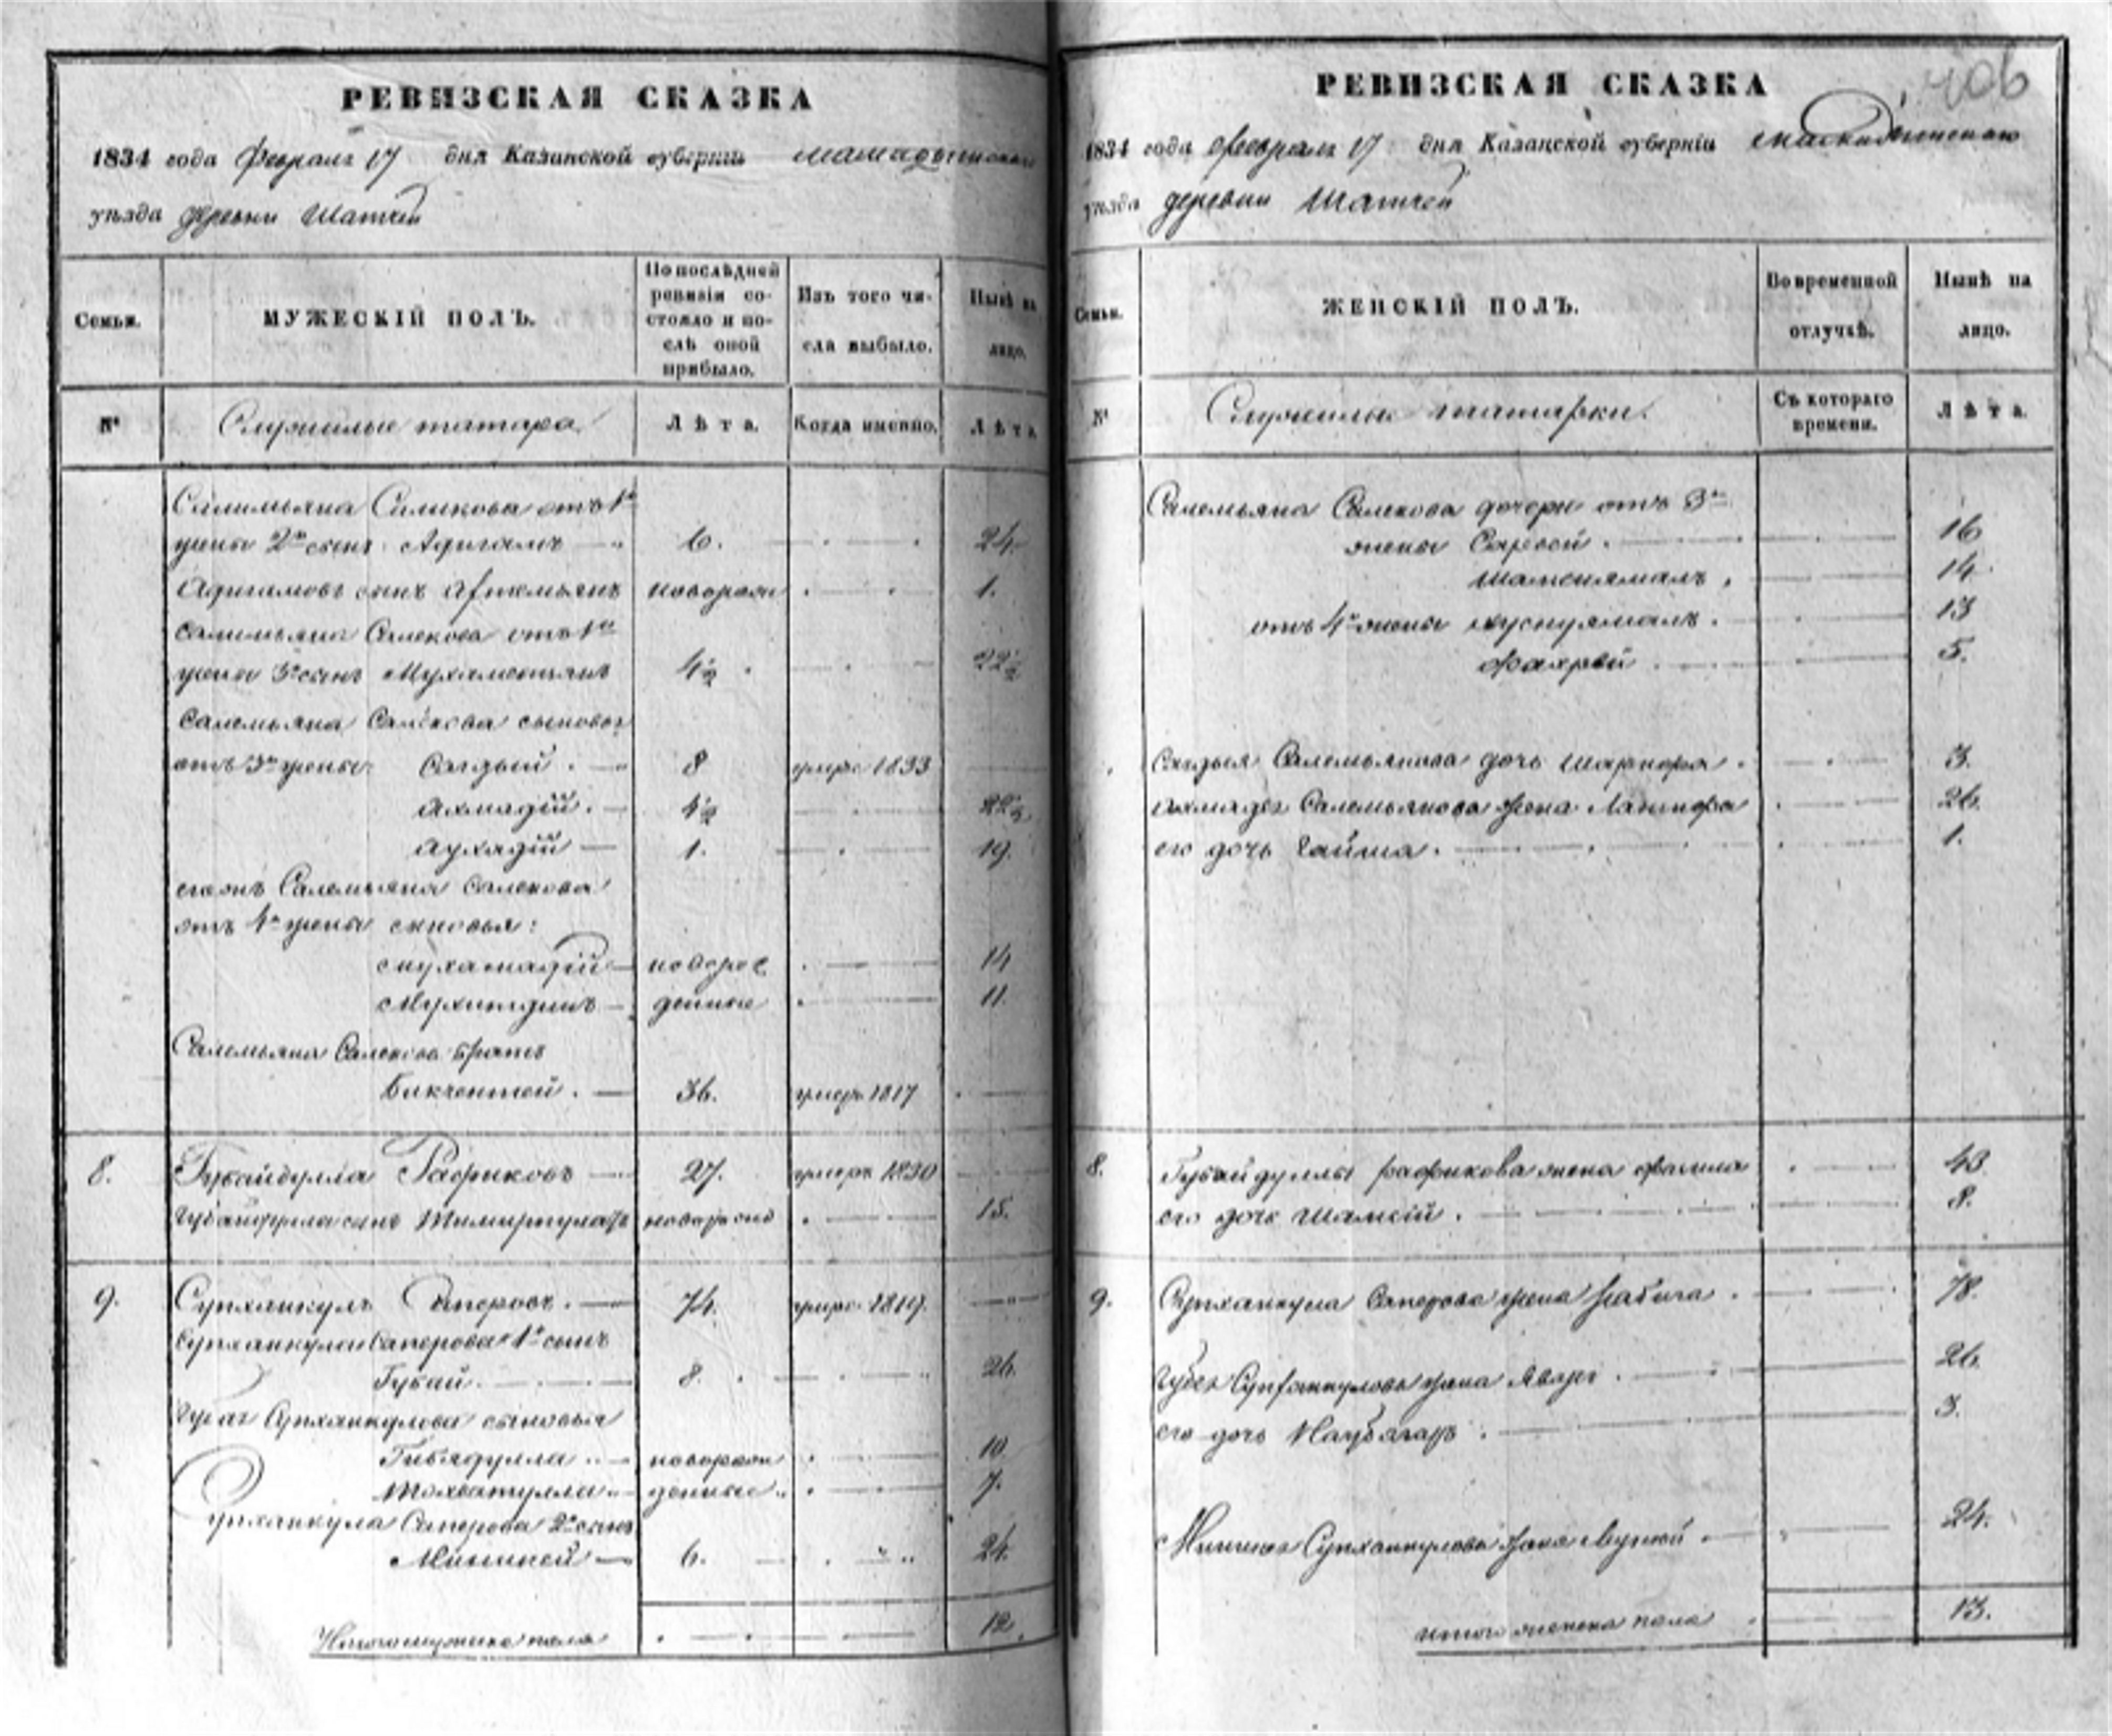 РЕВИЗСКАЯ СКАЗКА
1834 года февраля 17 дня Казанской губерніи мамадышскаго
уѣзда деревни Шатчей
Семьи.
МУЖЕСКІЙ ПОЛЪ.
По послѣдней ревизіи состояло и послѣ оной прибыло.
Изъ того числа выбыло.
Нынѣ на лицо.
№
Служилые татара
Лѣта.
Когда именно.
Лѣта.
Салемьяна Салекова отъ 1й
жены 2й сынъ Адигамъ 6. 24.
Адигамовъ сынъ новорож 1.
Салемьяна Салекова отъ 1й
жены 3й сынъ Мухаметзянъ 4½ 22½
Салемьяна Салекова сыновья
отъ 3й жены: Сагдый 8 умре 1833
Ахмадій 4½ 22½
Аухадій 1. 19.
его жъ Салемьяна Салекова
отъ 4й жены сыновья:
Мухамадій новорож 14
Мухитдинъ денные 11.
Салемьяна Салекова братъ
Бикчентей 36. умеръ 1817
8. Губайдулла Рафиковъ 27. умеръ 1830
Губайдулла сынъ Тимиргула новорожд 15.
9. Суnханкулъ Саперовъ 74. умре 1819.
Суnханкула Саперова 1й сынъ
Губай 8. 26.
Губая Суnханкулова сыновья
Гибядулла новорож 10.
Тохватулла денные 7.
Суnханкула Саперова 2й сынъ
Миникей 6. 24.
Итого мужеска пола 12.
406
РЕВИЗСКАЯ СКАЗКА
1834 года февраля 17 дня Казанской губерніи мамадышскаго
уѣзда деревни Шатчей
Семьи.
ЖЕНСКІЙ ПОЛЪ.
Во временной отлучкѣ.
Нынѣ на лицо.
№
Служилы татарки.
Съ котораго времени.
Лѣта.
Салемьяна Салекова дочери отъ 3й
жены Сарвѣй 16
Шамсиямалъ 14
отъ 4й жены Хуснуямалъ 13
Фахрѣй 5.
Сагдыя Салемьянова дочь 3.
Ахмадея Салемьянова жена Латифа 26.
его дочь Гайша 1.
8. Губайдуллы Рафикова жена Фазила 43
его дочь Шамсій 8.
9. Суnханкула Саперова жена Рабига 78.
Губея Суnханкулова жена 26.
его дочь 3.
Миникея Суnханкулова жена 24.
итого женска пола 13.